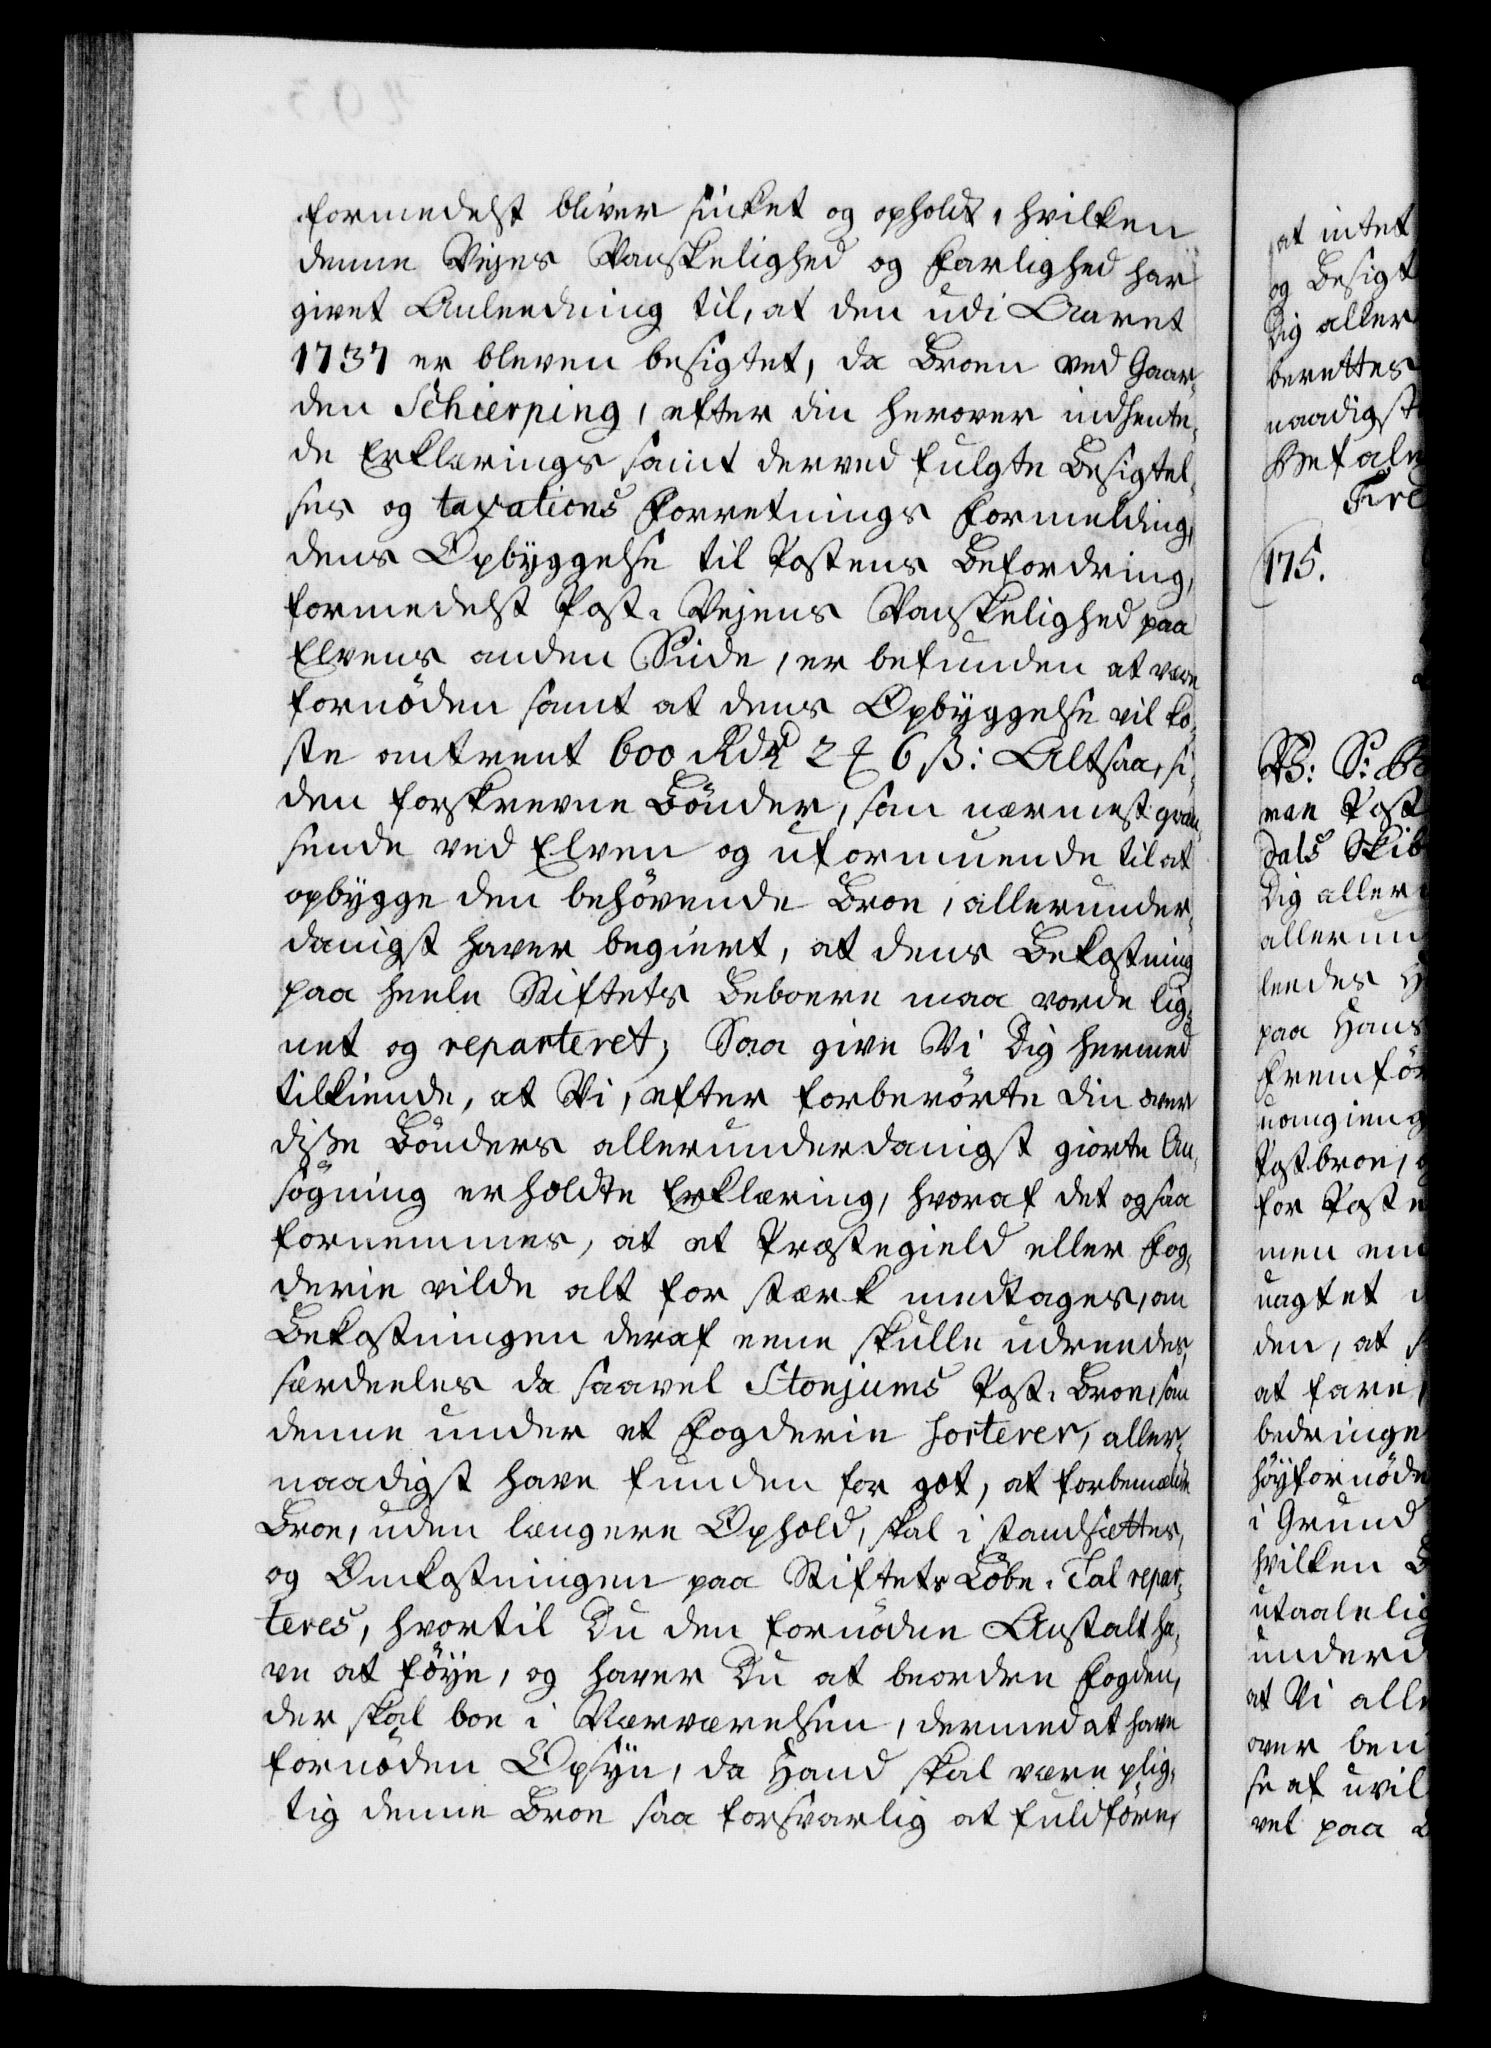 formedelst bliver sinket og opholdt, hvilken
denne Vejes Vanskelighed og Farlighed har
givet Anleedning til, at den udi Aaret
1737 er bleven besigtet, da Broen ved Gaar-
den Schierping, efter din herover indhente-
de Erklærings samt derved fulgte Besigtel-
ses og taxations Forretnings Formelding,
dens Opbyggelse til Postens Befordring,
formedelst Post-Vejens Vanskelighed paa
Elvens anden Siide, er befunden at være
fornöden samt at dens Opbyggelse vil ko-
ste omtrent 600 Rdr 2 ℳ 6 ß: Altsaa, si-
den forskrevne Bönder, som nærmest græn-
sende ved Elven og uformuende til at
opbygge den behövende Broe, allerunder-
danigst haver begiert, at dens Bekostning
paa heele Stiftets Beboere maa vorde lig-
net og reparteret; Saa give Vi Dig hermed
tilkiende, at Vi, efter forberörte din over
diße Bönders allerunderdanigst giorte An-
sögning erholdte Erklæring, hvoraf det ogsaa
fornemmes, at et Præstegield eller Fog-
derie vilde alt for stærk medtages, om
Bekostningen deraf eene skulle udreedes,
særdeeles da saavel Stonjums Post-Broe, som
denne under et Fogderie sorterer, aller-
naadigst have funden for got, at forbemælte
Broe, uden længere Ophold, skal i standsættes,
og Omkostningen paa Stiftets Löbe-Tal repar-
teres, hvortil Du den fornödne Anstalt ha-
ve at föye, og haver Du at beordre Fogden,
der skal boe i Nærværelsen, dermed at have
fornöden Opsÿn, da Hand skal være plig-
tig denne Broe saa forsvarlig at fuldföre,
at intet
og Besigt
Dig aller
berettes
naadigst
Befale
Fre
175.
V: S:
ven Post
dals Skib
Dig aller
allerun
leedes
paa Hans
Fremför
uomgieng
Postbroe,
for Poste
men en
uagtet
den, at
at fare,
bedringe
höyfornöde
i Grund
hvilken
utaalelig
underd
at Vi alle
over ben
se af uvil
vet paa